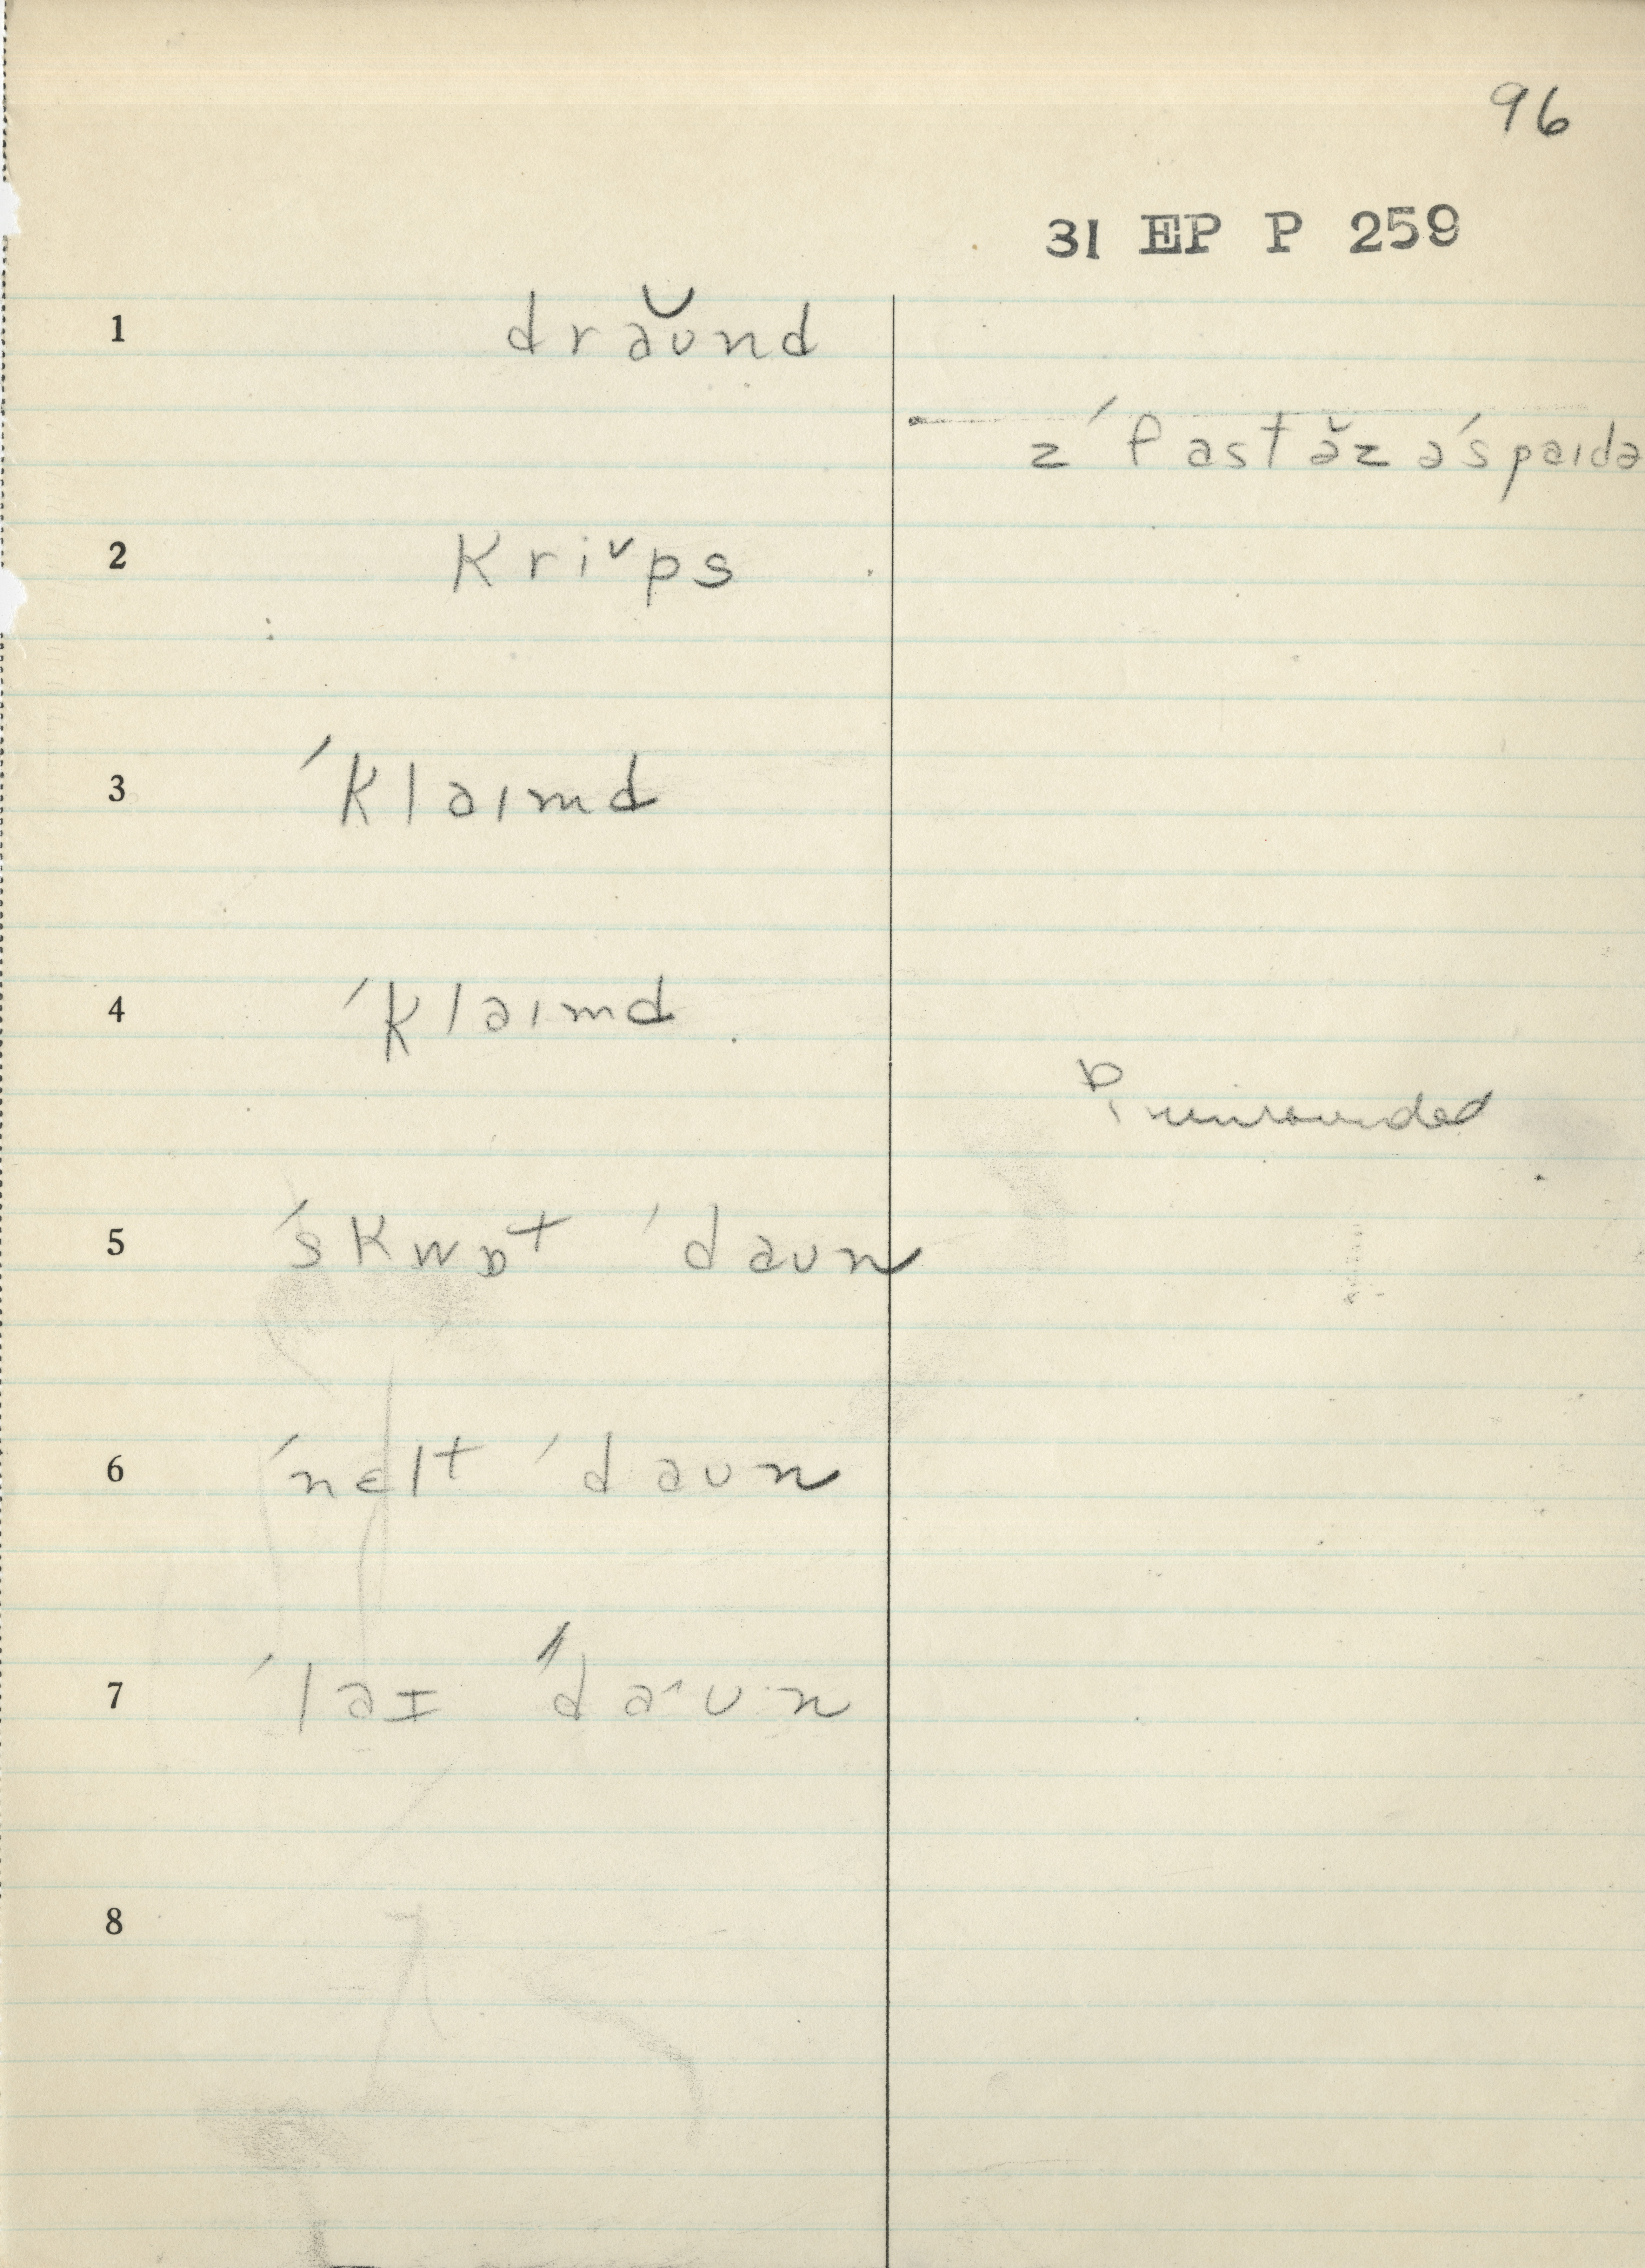 96
31 EP P 259
1 drəʊ̆nd
z ˈfast ə̆z ə ˈspaɪdə
2 kri˅ps
3 ˈklaɪmd
4 ˈklaɪmd
ɒ, unrounded
5 ˈskwɒt ˈdaʊn
6 ˈnɛlt ˈdaʊn
7 ˈlaɪ ˈda˄ʊn
8